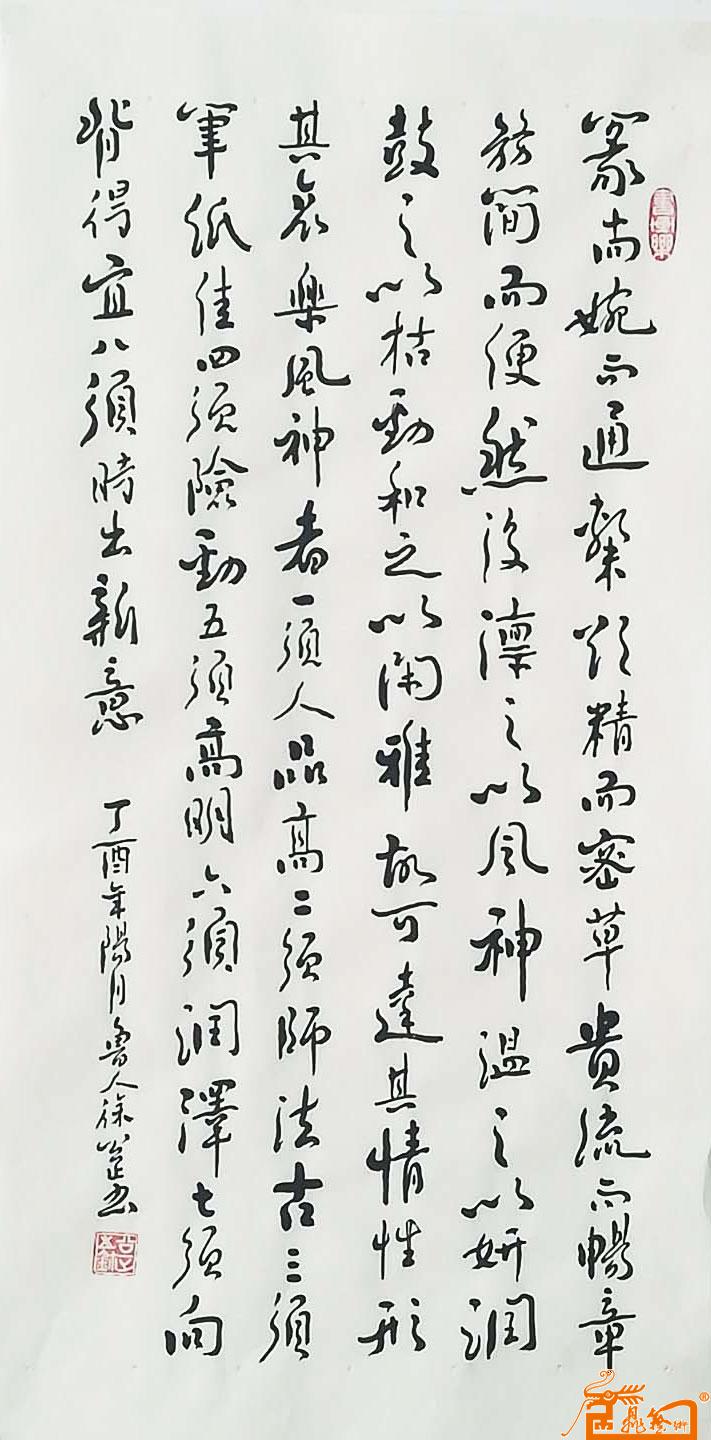 篆尚婉而通隸欲精而密草貴流而暢章
務簡而便然後凜之以風神温之以妍潤
鼓之以枯勁和之以闲雅故可達其情性形
其哀樂風神者一須人品高二須師法古三須
筆紙佳四須險勁五須高明六須潤澤七須向
背得宜八須時出新意
丁酉年陽月魯人徐